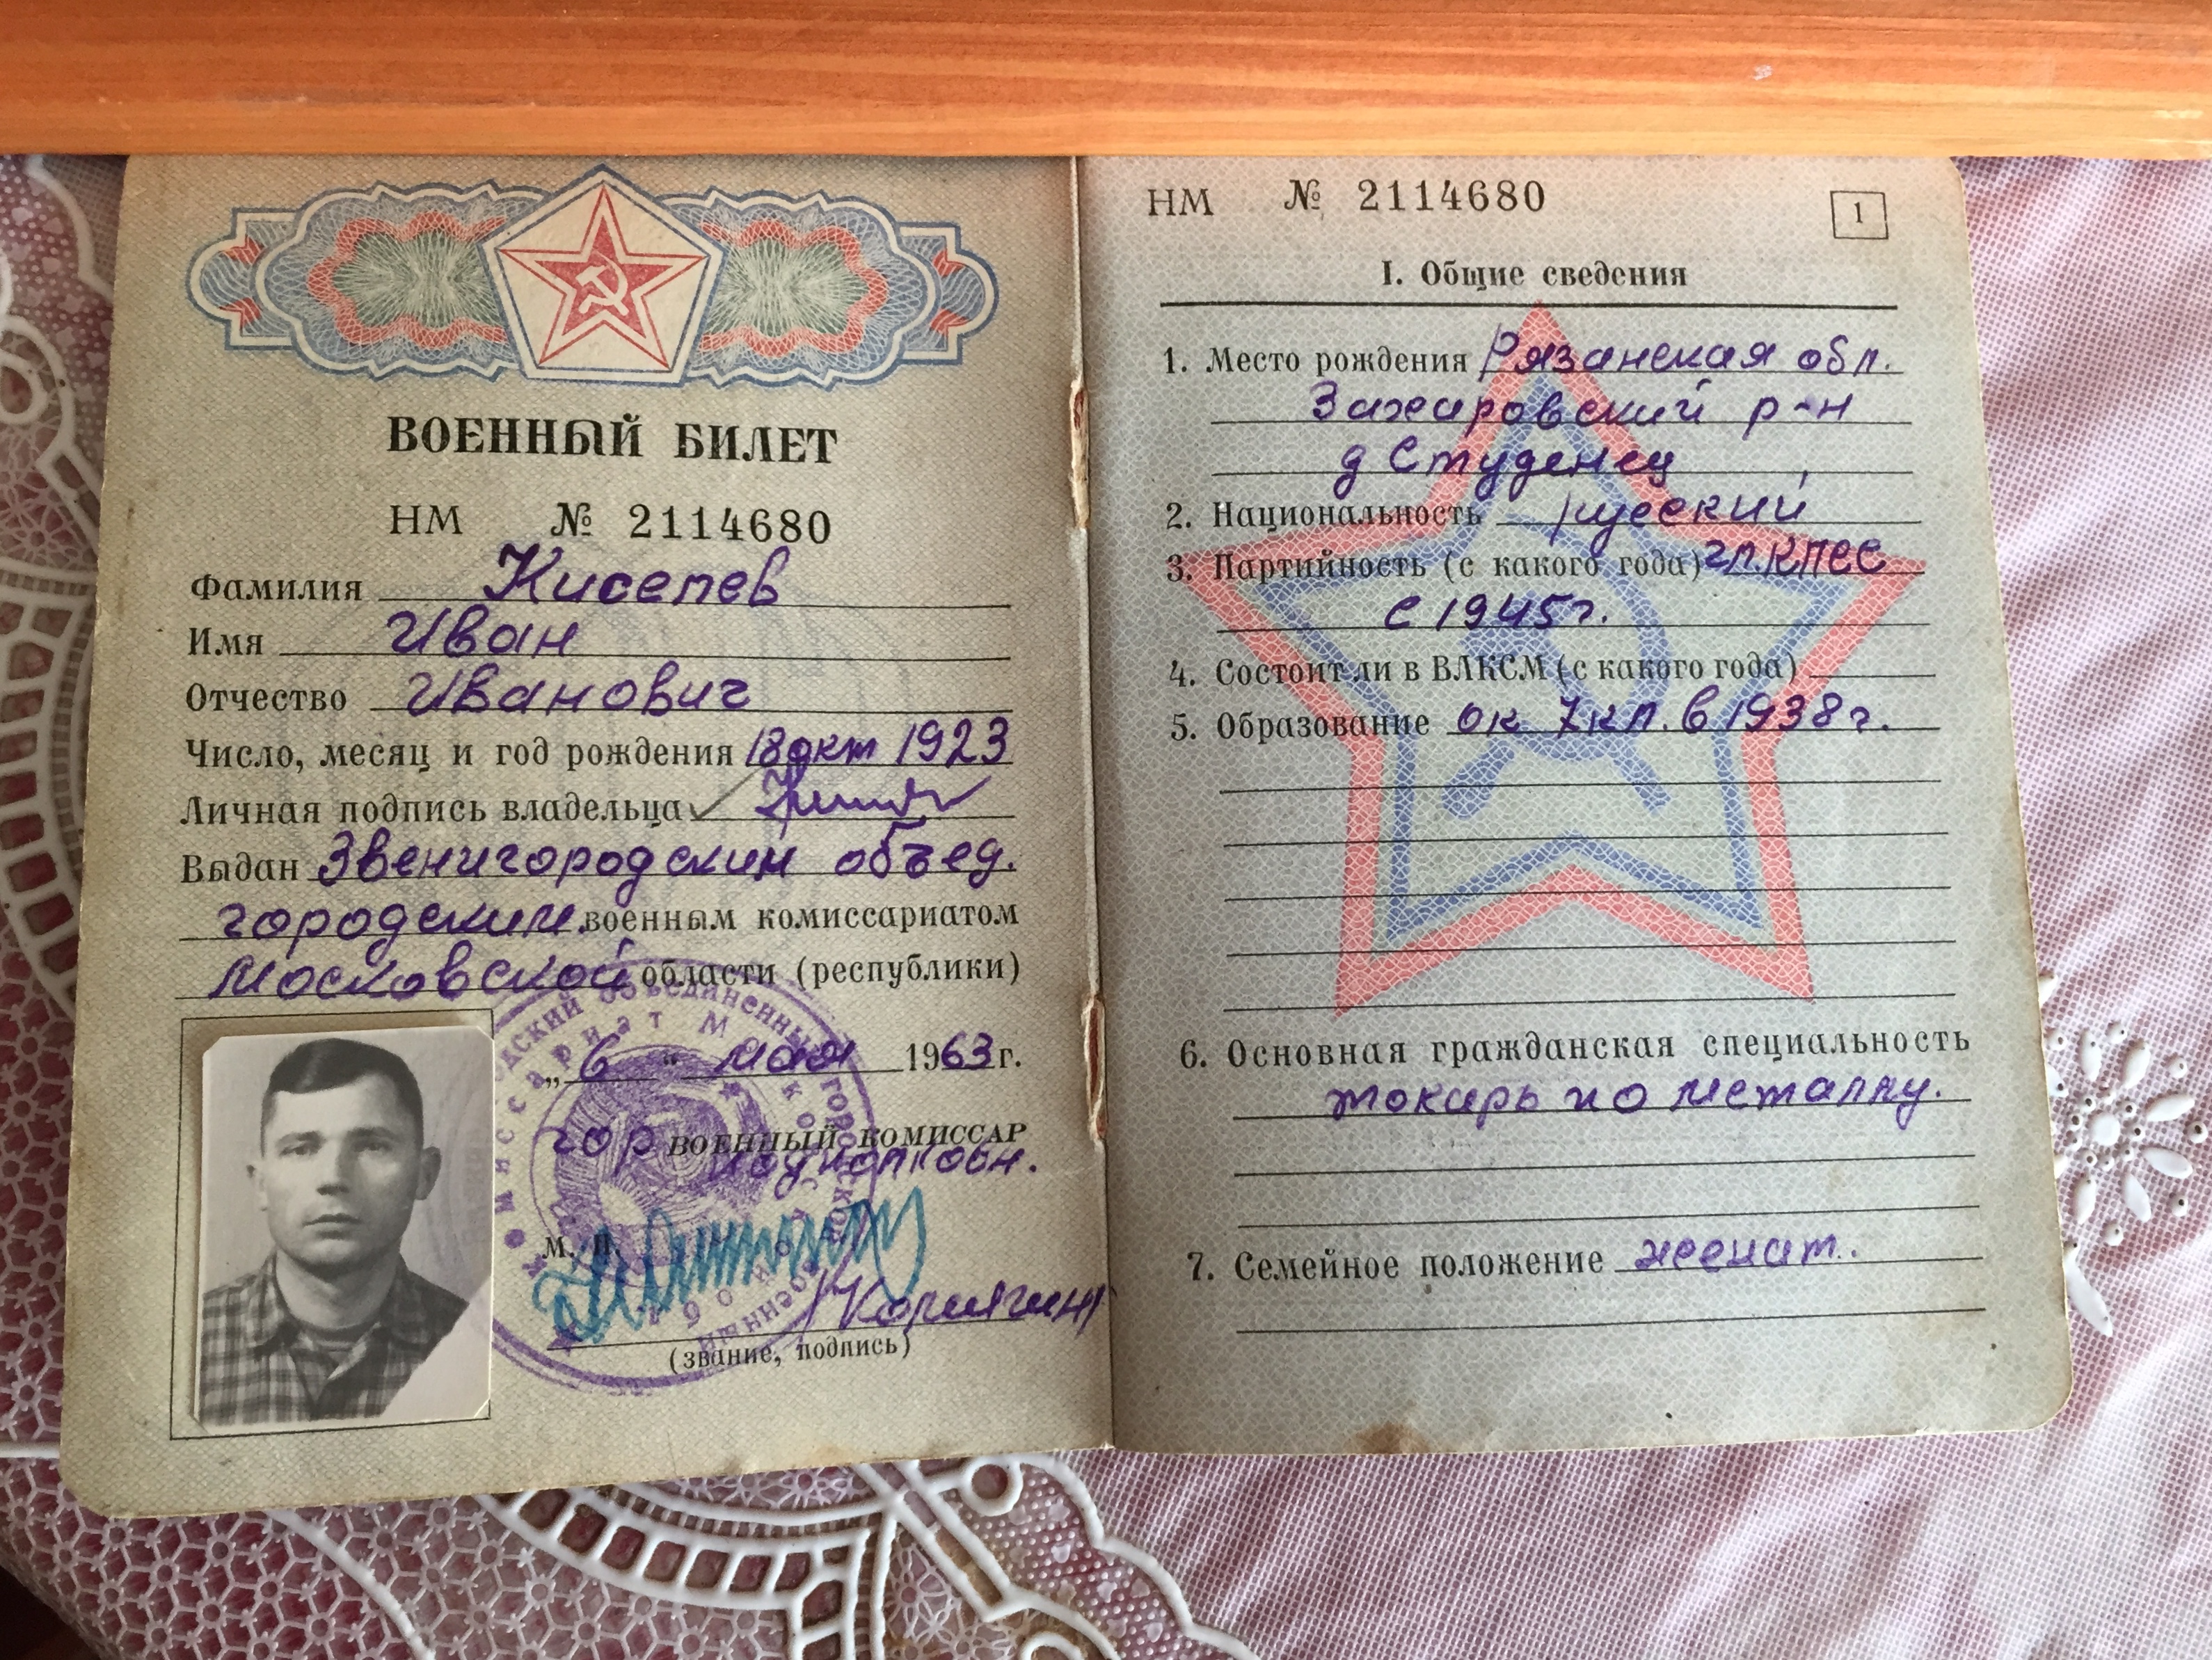 ВОЕННЫЙ БИЛЕТ
НМ № 2114680
Фамилия Киселев
Имя Иван
Отчество Иванович
Число, месяц и год рождения 18 окт 1923
Личная подпись владельца
Выдан Звенигородским объед.
городским военным комиссариатом
Московской области (республики)
„6“ мая 1963 г.
гор ВОЕННЫЙ КОМИССАР
подполковн.
М. П.
(звание, подпись)
НМ № 2114680
1
I. Общие сведения
1. Место рождения Рязанская обл.
Захаровский р-н
д Студенец
2. Национальность русский
3. Партийность (с какого года) чл. КПСС
с 1945 г.
4. Состоит ли в ВЛКСМ (с какого года)
5. Образование ок 7 кл. в 1938 г.
6. Основная гражданская специальность
токарь по металлу.
7. Семейное положение женат.